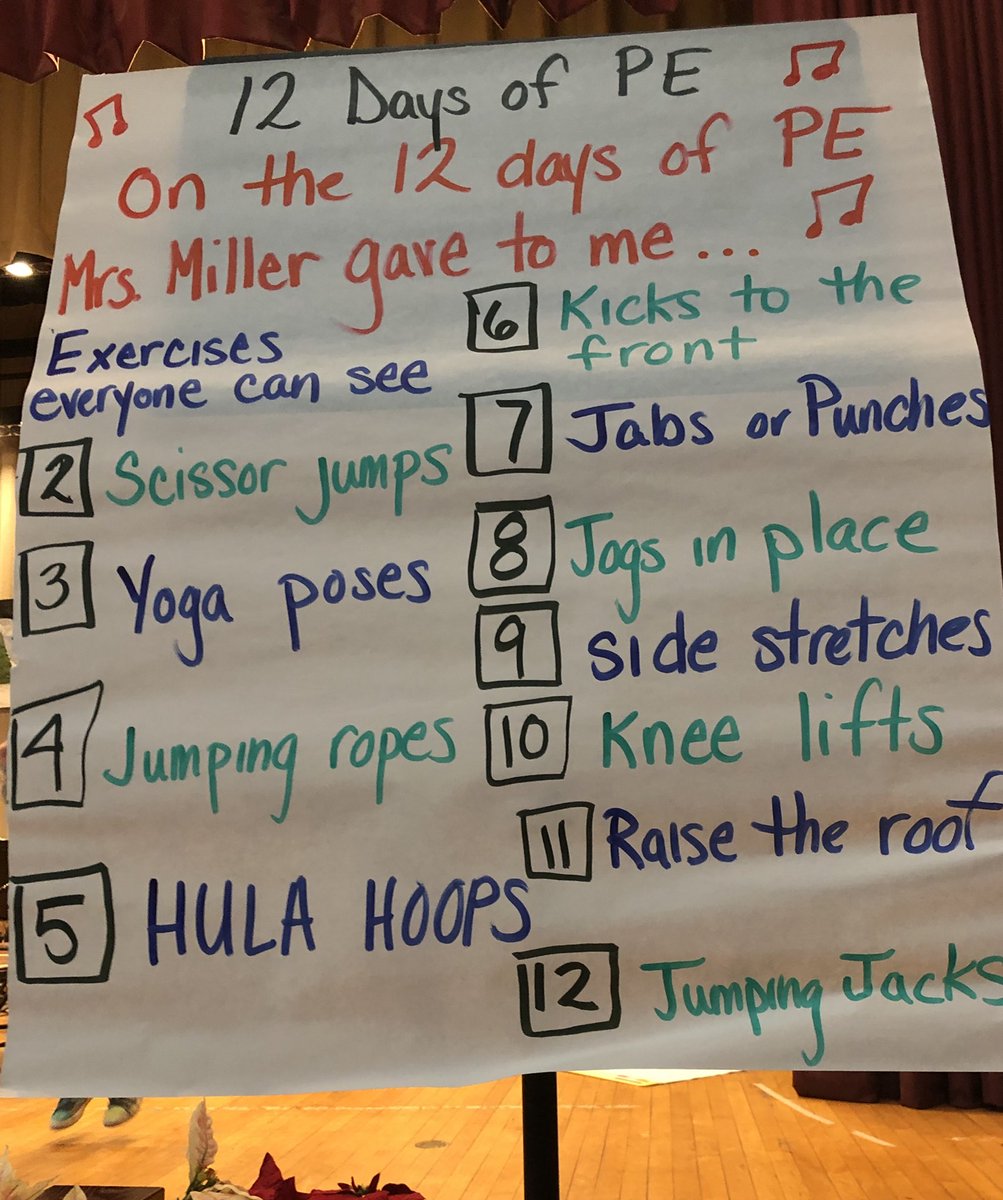 12 Days of PE
On the 12 days of PE
Mrs. Miller gave to me...
Exercises
everyone can see
2 Scissor jumps
3 Yoga poses
4 Jumping ropes
5 HULA HOOPS
6 Kicks to the
front
7 Jabs or Punches
8 Jogs in place
9 side stretches
10 Knee lifts
11 Raise the roof
12 Jumping Jacks